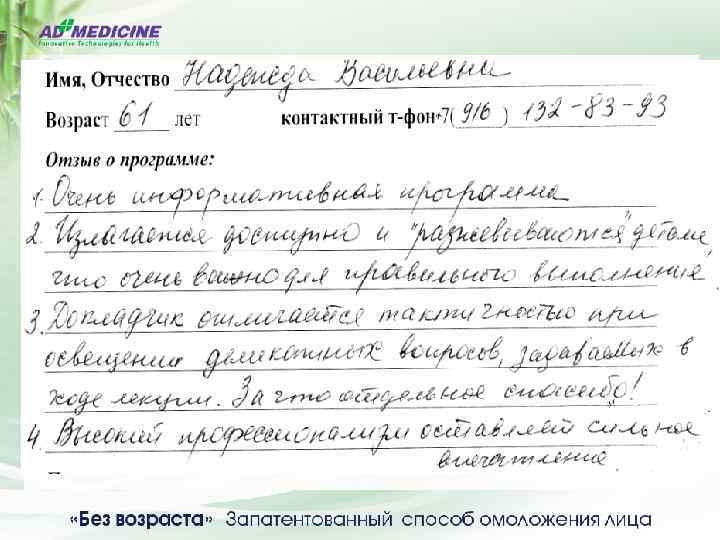 AD MEDICINE
Innovative Technologies for Health
Имя, Отчество Надежда Васильевна
Возраст 61 лет контактный т-фон+7( 916 ) 132-83-93
Отзыв о программе:
1. Очень информативная программа
2. Излагается доступно и "разжевываются" детали,
что очень важно для правильного выполнения
3. Докладчик отличается тактичностью при
освещении деликатных вопросов, задаваемых в
ходе лекции. За что отдельное спасибо!
4. Высокий профессионализм оставляет сильное
впечатление
«Без возраста» Запатентованный способ омоложения лица